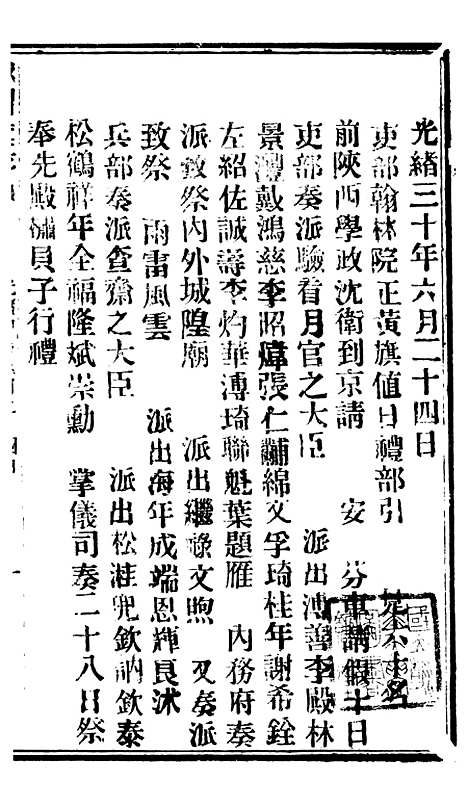 光緒三十年六月二十四日
吏部翰林院正黃旗値日禮部引
前陝西學政沈衛到京請　安　芬車請假十日
吏部奏派驗看月官之大臣　派出溥善李殿林
景灃戴鴻慈李昭煒張仁黼綿文孚琦桂年謝希銓
左紹佐誠壽李灼華溥琦聯魁葉題雁　內務府奏
派致祭內外城隍廟　派出繼祿文煦　又奏派
致祭　雨雷風雲　派出海年成端恩輝良沐
兵部奏派查齋之大臣　派出松溎兜欽訥欽泰
松鶴祥年全福隆斌崇勳　掌儀司奏二十八日祭
奉先殿　員子行禮